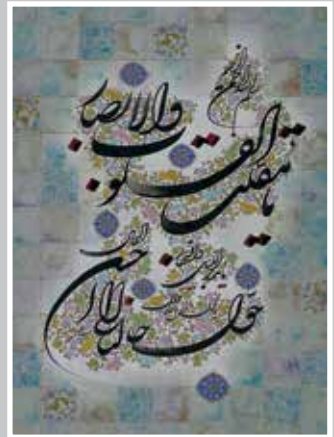 بسم الله الرحمن الرحیم
یا مقلب القلوب
والابصار
یا مدبر اللیل والنهار
یا محول الحول والاحوال
حول حالنا الی احسن الحال